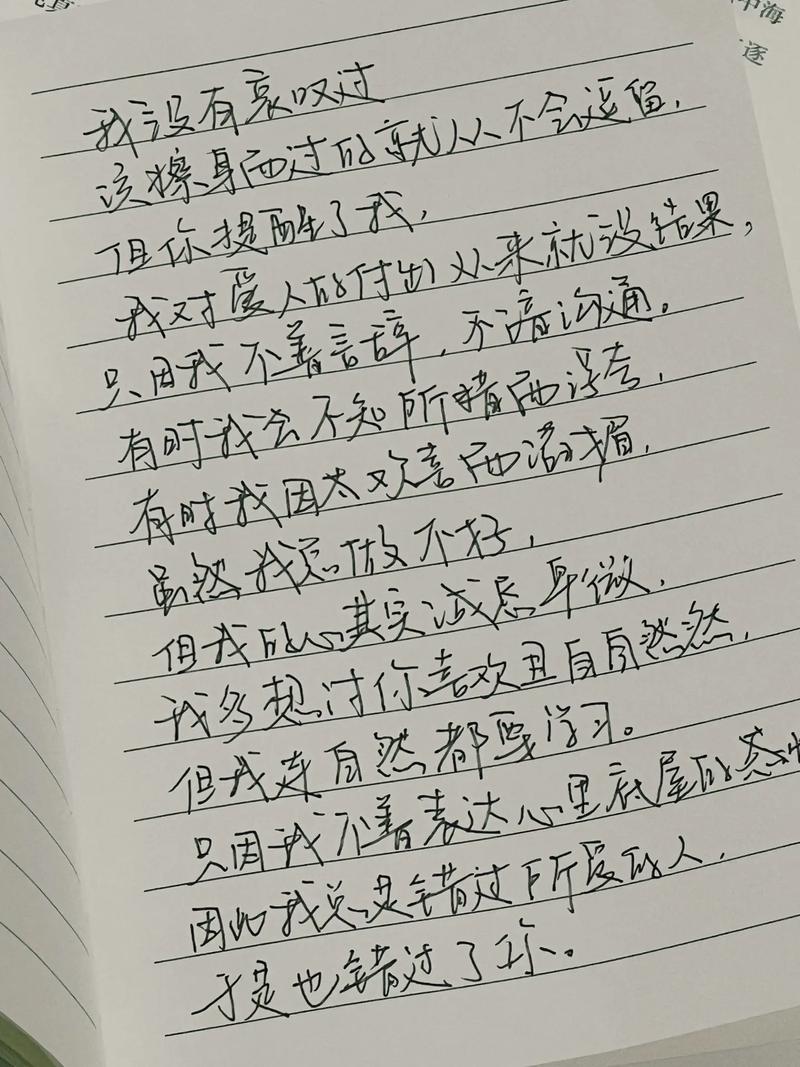 中海
逐
我没有哀叹过
该擦身而过的就从不会逗留，
但你提醒了我，
我对爱人的付出从来就没结果，
只因我不善言辞，不谙沟通。
有时我会不知所措而浮夸，
有时我因太欢喜而
虽然我总做不好，
但我的心其实诚恳卑微，
我多想讨你喜欢且自自然然，
但我连自然都要学习。
只因我不善表达心里底层的
因此我总是错过所爱的人，
于是也错过了你。